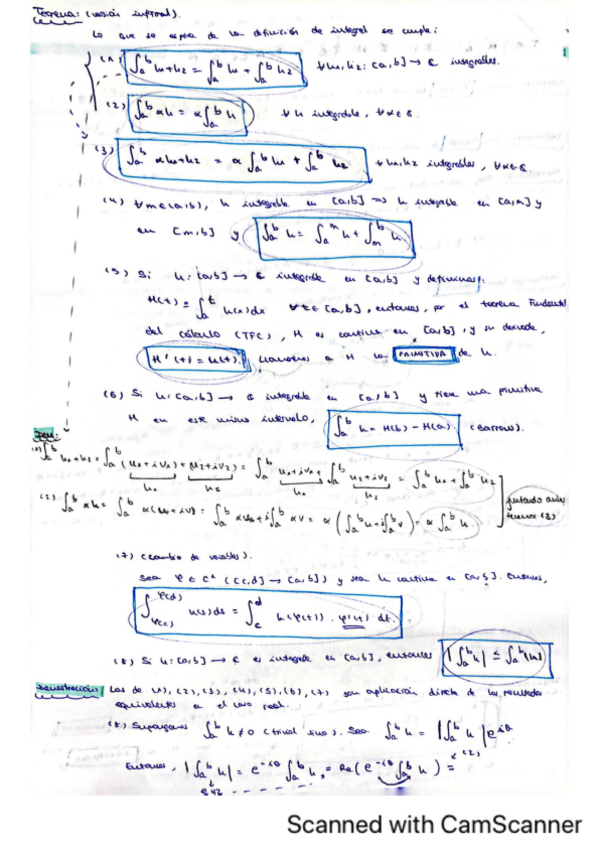 Teorema: (versión informal).
Lo que se espera de la definición de integral se cumple:
(1) ∫_a^b h1+h2 = ∫_a^b h1 + ∫_a^b h2 ∀h1,h2: [a,b] → ℂ integrables.
(2) ∫_a^b αh = α∫_a^b h ∀ h integrable, ∀α∈ℂ.
(3) ∫_a^b αh1+h2 = α ∫_a^b h1 + ∫_a^b h2 ∀ h1,h2 integrables, ∀α∈ℂ.
(4) ∀m∈(a,b), h integrable en [a,b] ⇒ h integrable en [a,m] y
en [m,b] y ∫_a^b h = ∫_a^m h + ∫_m^b h.
(5) Si h: [a,b] → ℂ integrable en [a,b] y definimos:
H(t) = ∫_a^t h(x)dx ∀t∈ [a,b], entonces, por el teorema Fundamental
del cálculo (TFC), H es continua en [a,b], y su derivada,
H'(t) = h(t). Llamamos a H la PRIMITIVA de h.
(6) Si h: [a,b] → ℂ integrable en [a,b] y tiene una primitiva
H en ese mismo intervalo, ∫_a^b h = H(b) - H(a). (Barrow).
Dem:
(1) ∫_a^b h1+h2 = ∫_a^b (u1+iv1)+(u2+iv2) = ∫_a^b u1+iv1 + ∫_a^b u2+iv2 = ∫_a^b h1 + ∫_a^b h2
h1 h2 h1 h2
(2) ∫_a^b αh = ∫_a^b α(u+iv) = ∫_a^b αu + i∫_a^b αv = α (∫_a^b u + i∫_a^b v) = α ∫_a^b h
juntando ambas
tenemos (3)
(7) (cambio de variable).
Sea φ ∈ C¹ ([c,d] → [a,b]) y sea h continua en [a,b]. Entonces,
∫_φ(c)^φ(d) h(s)ds = ∫_c^d h(φ(t)) · φ'(t) dt.
(8) Si h: [a,b] → ℂ es integrable en [a,b], entonces |∫_a^b h| ≤ ∫_a^b |h|
Demostración: Las de (1), (2), (3), (4), (5), (6), (7) son aplicación directa de los resultados
equivalentes en el caso real.
(8) Supongamos ∫_a^b h ≠ 0 (trivial sino). Sea ∫_a^b h = |∫_a^b h| e^iθ
Entonces, |∫_a^b h| = e^-iθ ∫_a^b h = Re(e^-iθ ∫_a^b h) =
(2)
Scanned with CamScanner